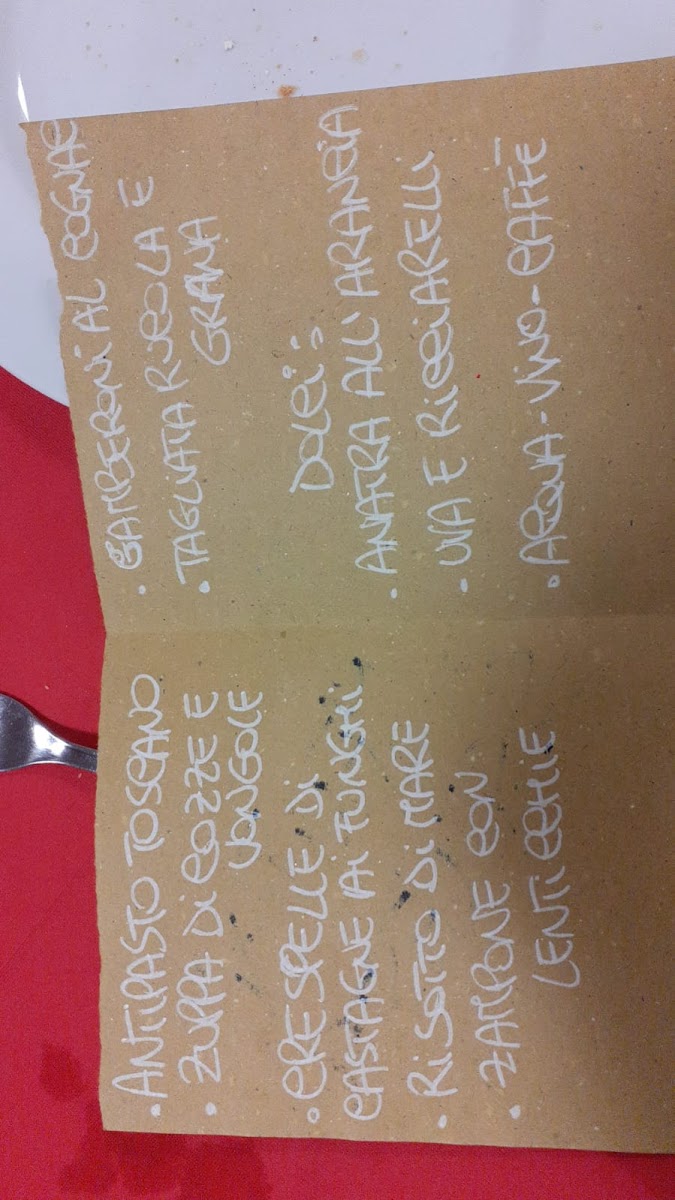 · ANTIPASTO TOSCANO
· ZUPPA DI COZZE E
VONGOLE
· CRESPELLE DI
CASTAGNE AI FUNGHI
· RISOTTO DI MARE
· ZAMPONE CON
LENTICCHIE
· GAMBERONI AL COGNAC
· TAGLIATA RUCOLA E
GRANA
DOLCI:
· ANATRA ALL'ARANCIA
· UVA E RICCIARELLI
· ACQUA-VINO-CAFFÈ